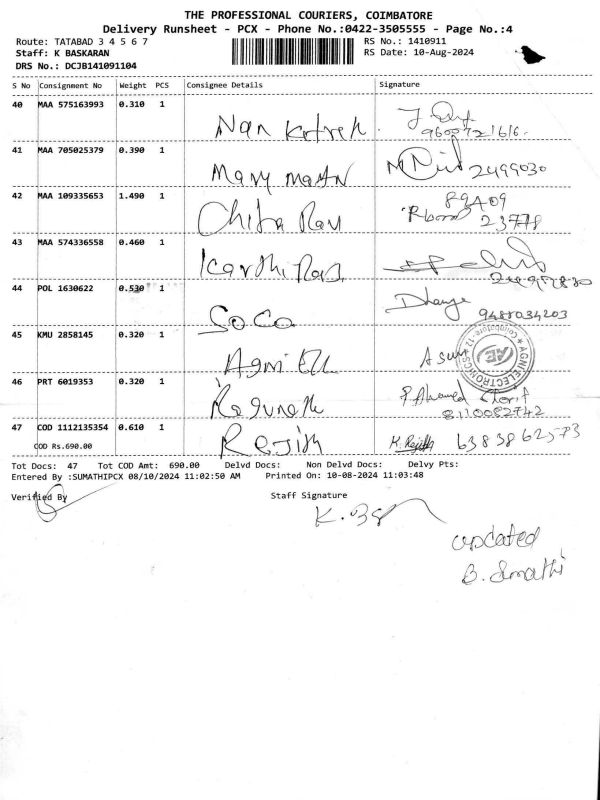 THE PROFESSIONAL COURIERS, COIMBATORE
Delivery Runsheet - PCX - Phone No.:0422-3505555 - Page No.:4
Route: TATABAD 3 4 5 6 7 RS No.: 1410911
Staff: K BASKARAN RS Date: 10-Aug-2024
DRS No.: DCJB141091104
S No Consignment No Weight PCS Consignee Details Signature
40 MAA 575163993 0.310 1
41 MAA 705025379 0.390 1 Mary 2499030
42 MAA 109335653 1.490 1 Chitra 89409
23778
43 MAA 574336558 0.460 1
44 POL 1630622 0.530 1 SOCO 9488034203
45 KMU 2858145 0.320 1 Agni
AGNI ELECTRONICS Coimbatore-12 AE
46 PRT 6019353 0.320 1 Regunath
8110082742
47 COD 1112135354 0.610 1 Rejith K. Rejith 6383862573
COD Rs.690.00
Tot Docs: 47 Tot COD Amt: 690.00 Delvd Docs: Non Delvd Docs: Delvy Pts:
Entered By :SUMATHIPCX 08/10/2024 11:02:50 AM Printed On: 10-08-2024 11:03:48
Verified By Staff Signature
updated